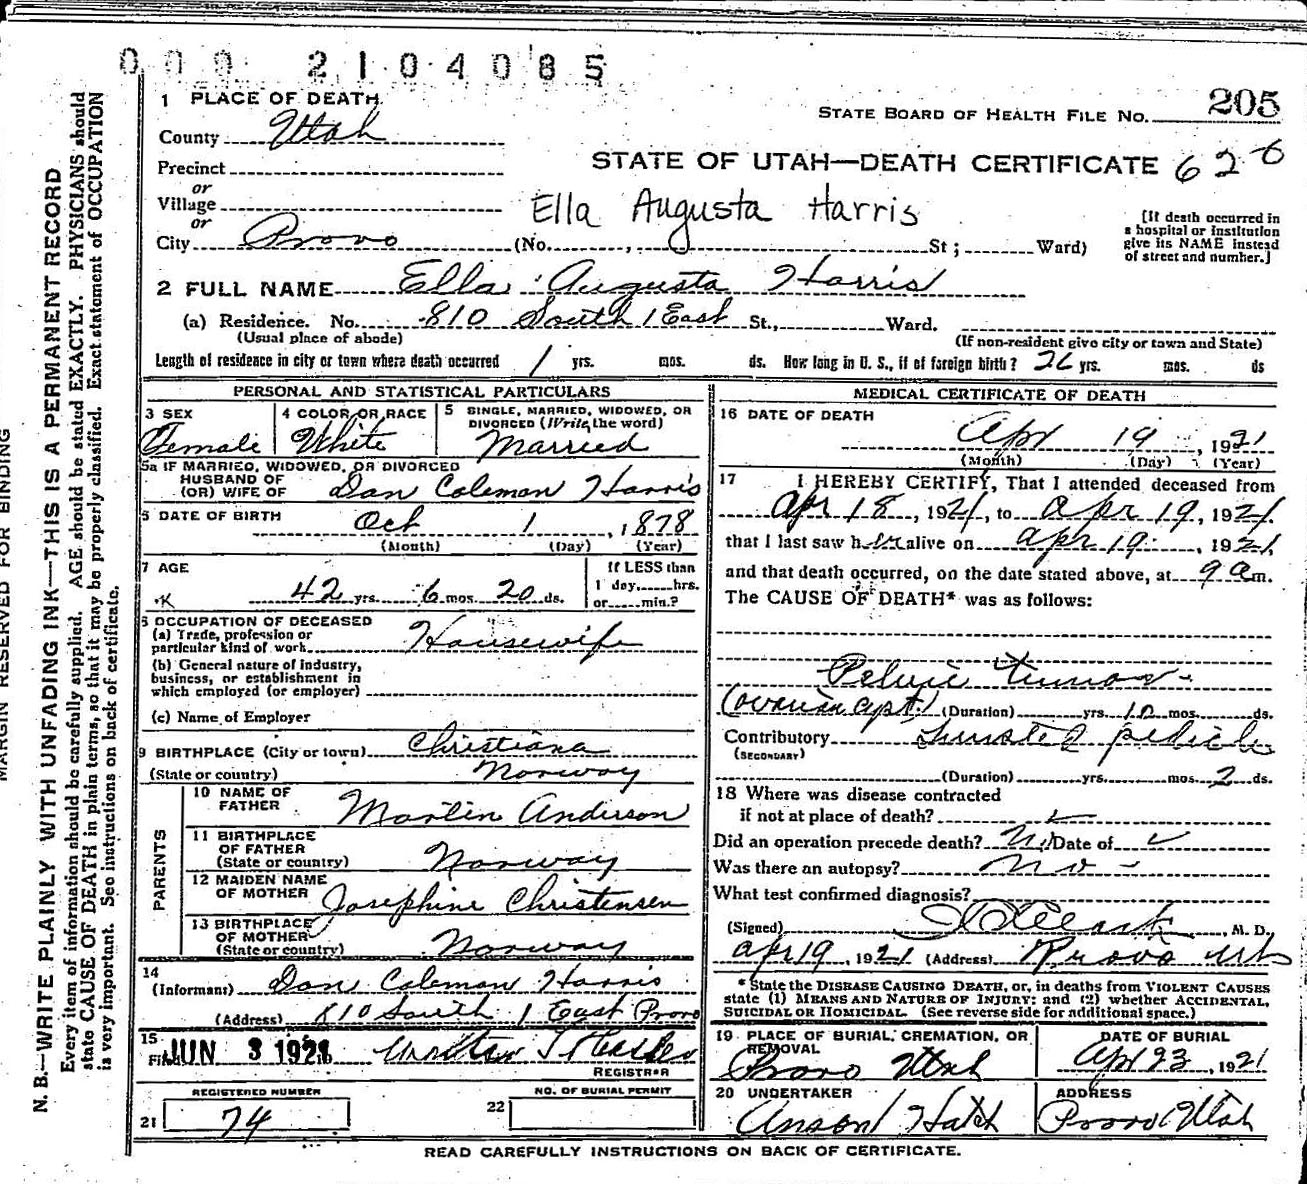 000 2104085
1 PLACE OF DEATH
STATE BOARD OF HEALTH FILE No. 205
County Utah
STATE OF UTAH—DEATH CERTIFICATE 626
Precinct
or
Village
Ella Augusta Harris
or
City Provo (No. , St; Ward)
[If death occurred in
a hospital or institution
give its NAME instead
of street and number.]
2 FULL NAME Ella Augusta Harris
(a) Residence. No. 810 South 1 East St., Ward.
(Usual place of abode)
(If non-resident give city or town and State)
Length of residence in city or town where death occurred 1 yrs. mos. ds. How long in U. S., if of foreign birth? 26 yrs. mos. ds
PERSONAL AND STATISTICAL PARTICULARS
3 SEX
Female
4 COLOR OR RACE
White
5 SINGLE, MARRIED, WIDOWED, OR
DIVORCED (Write the word)
Married
5a IF MARRIED, WIDOWED, OR DIVORCED
HUSBAND OF
(OR) WIFE OF Dan Coleman Harris
6 DATE OF BIRTH Oct 1, 1878
(Month) (Day) (Year)
7 AGE
42 yrs. 6 mos. 20 ds.
If LESS than
1 day, hrs.
or min.?
8 OCCUPATION OF DECEASED
(a) Trade, profession or
particular kind of work Housewife
(b) General nature of industry,
business, or establishment in
which employed (or employer)
(c) Name of Employer
9 BIRTHPLACE (City or town) Christiana
(State or country) Norway
PARENTS
10 NAME OF
FATHER Martin Anderson
11 BIRTHPLACE
OF FATHER
(State or country) Norway
12 MAIDEN NAME
OF MOTHER Josephine Christensen
13 BIRTHPLACE
OF MOTHER
(State or country) Norway
14
(Informant) Dan Coleman Harris
(Address) 810 South 1 East Provo
15
Filed JUN 3 1921
REGISTRAR
REGISTERED NUMBER
21 74
NO. OF BURIAL PERMIT
22
MEDICAL CERTIFICATE OF DEATH
16 DATE OF DEATH
Apr 19, 1921
(Month) (Day) (Year)
17 I HEREBY CERTIFY, That I attended deceased from
Apr 18, 1921, to Apr 19, 1921.
that I last saw her alive on Apr 19, 1921,
and that death occurred, on the date stated above, at 9 am.
The CAUSE OF DEATH* was as follows:
Pelvic tumor-
(ovarian cyst.) (Duration) yrs. 10 mos. ds.
Contributory twisted pedicle
(SECONDARY)
(Duration) yrs. mos. 2 ds.
18 Where was disease contracted
if not at place of death?
Did an operation precede death? No Date of
Was there an autopsy? No -
What test confirmed diagnosis?
(Signed) , M. D.
Apr 19, 1921 (Address) Provo Utah
* State the DISEASE CAUSING DEATH, or, in deaths from VIOLENT CAUSES
state (1) MEANS AND NATURE OF INJURY; and (2) whether ACCIDENTAL,
SUICIDAL OR HOMICIDAL. (See reverse side for additional space.)
19 PLACE OF BURIAL, CREMATION, OR
REMOVAL
Provo Utah
DATE OF BURIAL
Apr 23, 1921
20 UNDERTAKER
Anson Hatch
ADDRESS
Provo Utah
READ CAREFULLY INSTRUCTIONS ON BACK OF CERTIFICATE.
MARGIN RESERVED FOR BINDING
N. B.—WRITE PLAINLY WITH UNFADING INK—THIS IS A PERMANENT RECORD
Every item of information should be carefully supplied. AGE should be stated EXACTLY. PHYSICIANS should
state CAUSE OF DEATH in plain terms, so that it may be properly classified. Exact statement of OCCUPATION
is very important. See instructions on back of certificate.